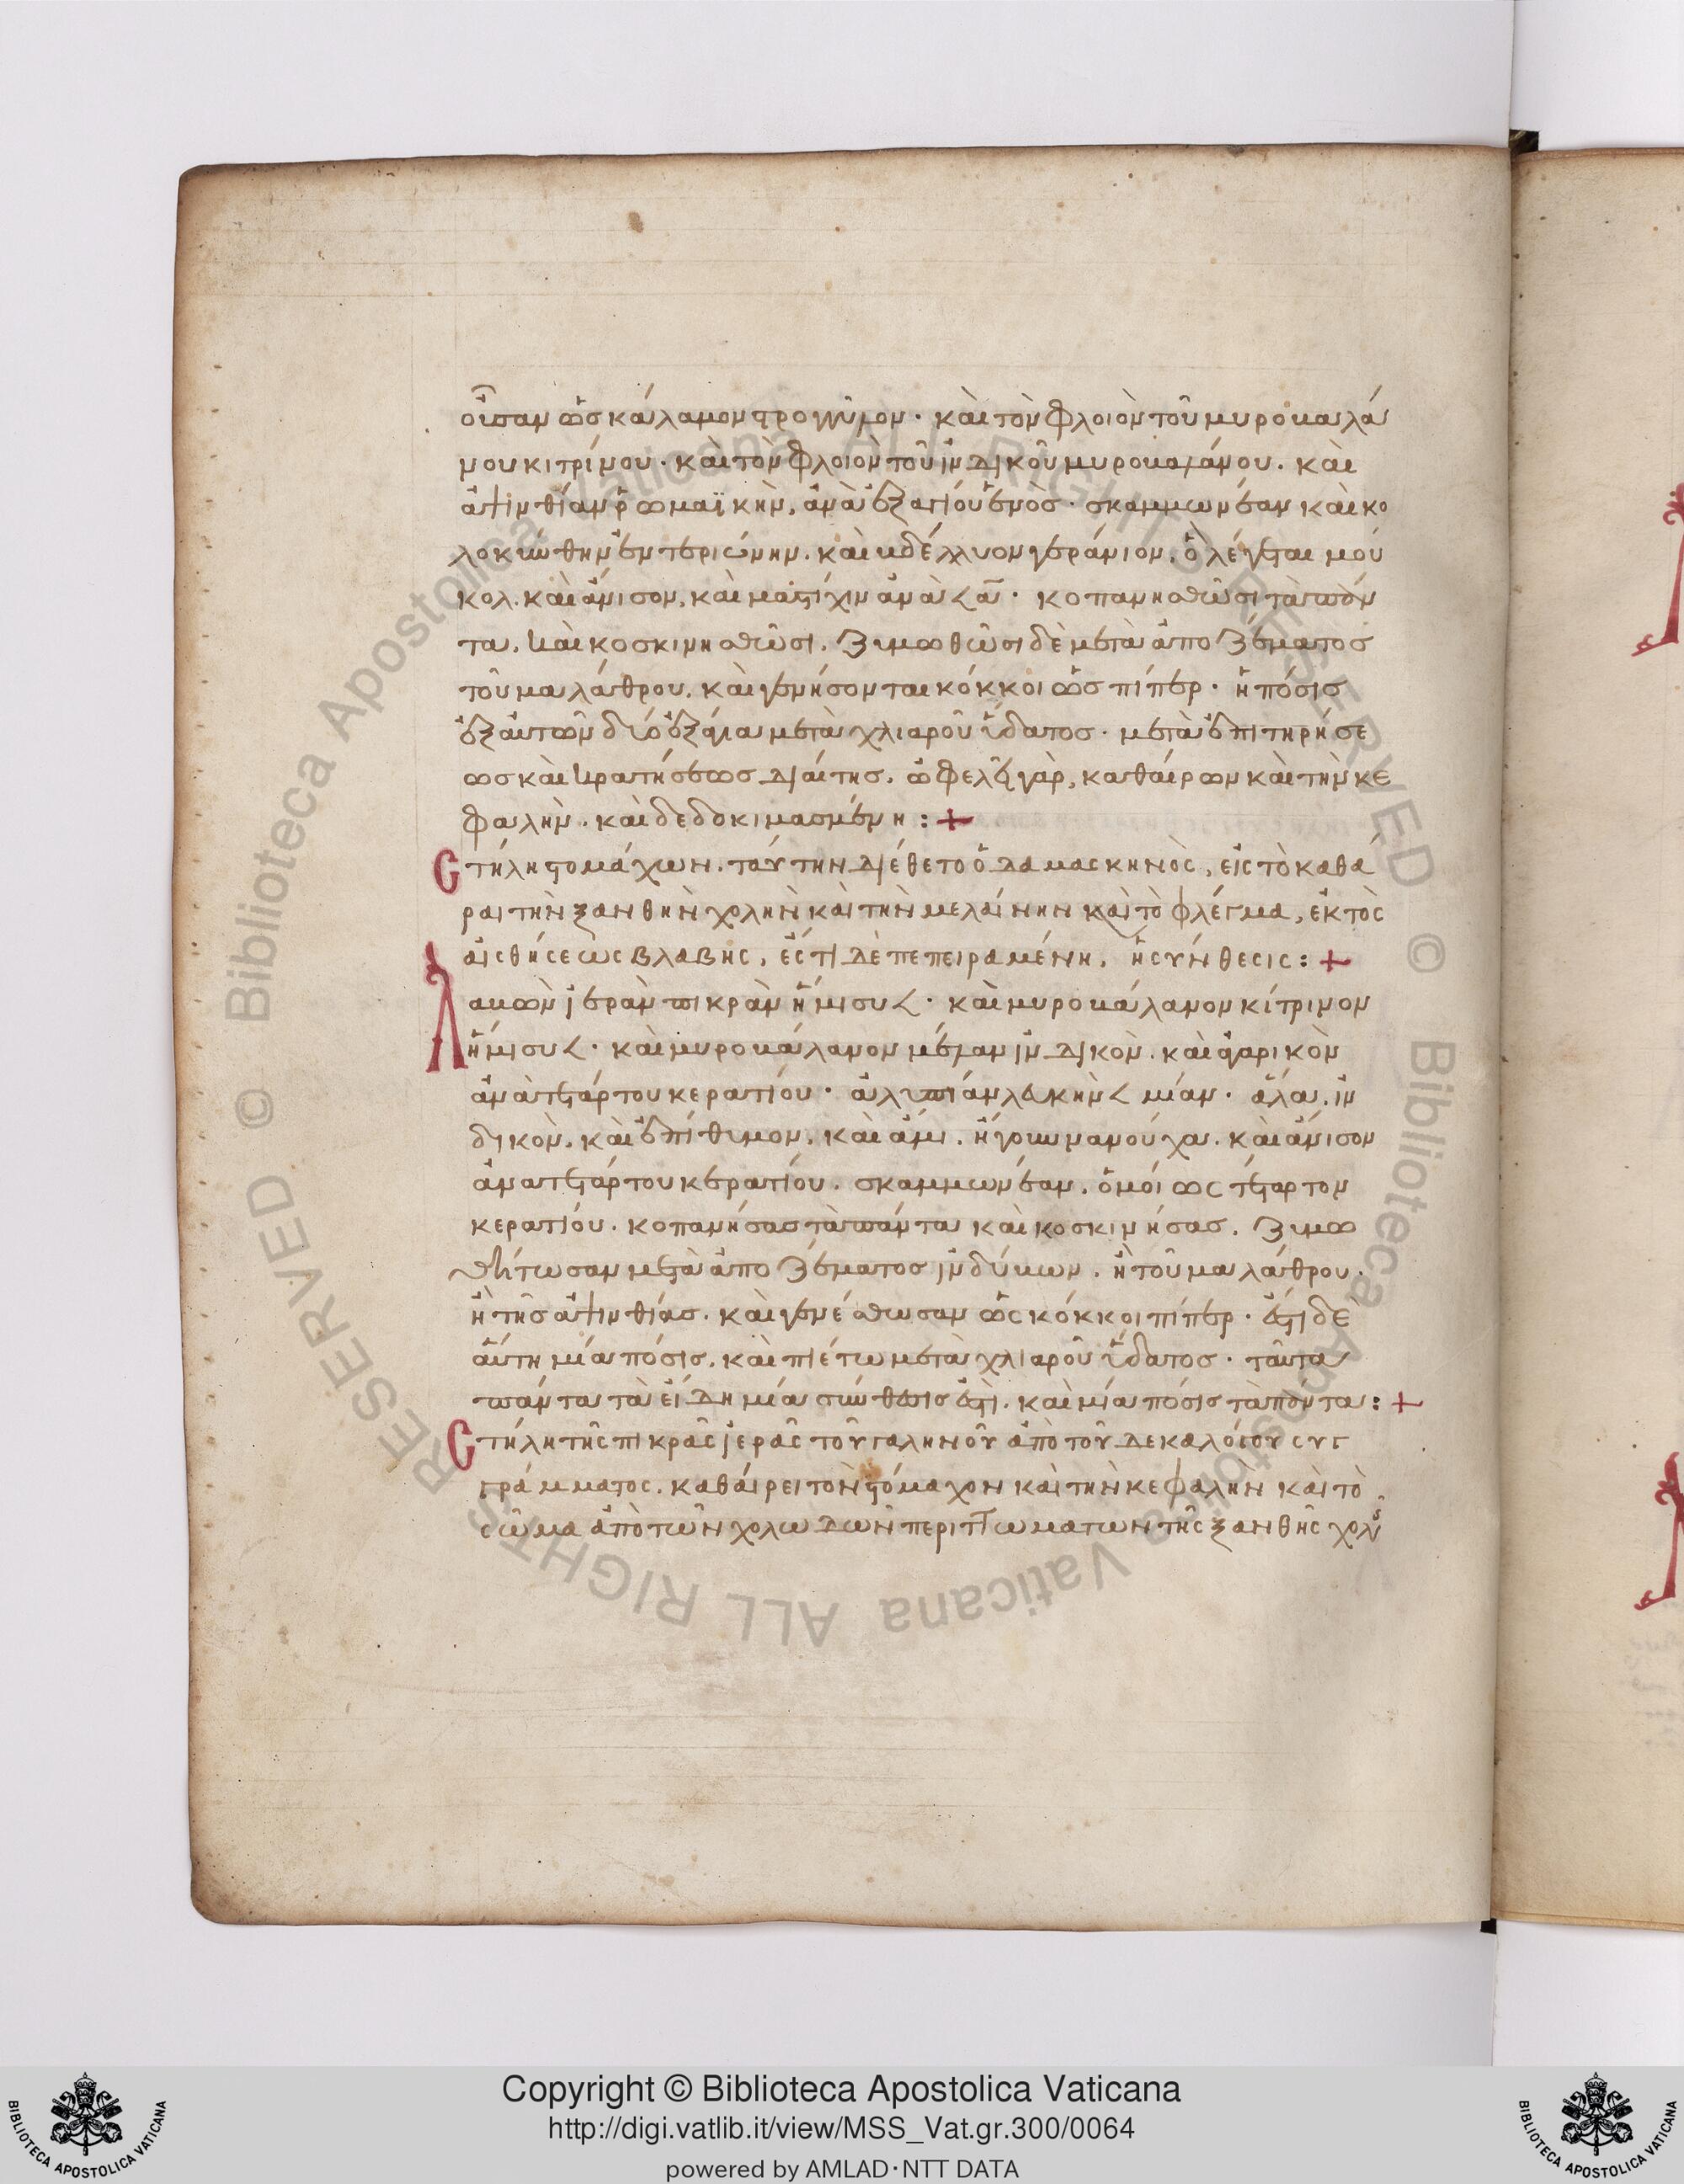 οὖσαν ὡς κάλαμον στρογγύλον· καὶ τὸν φλοιὸν τοῦ μυροβαλά
νου κιτρίνου· καὶ τὸν φλοιὸν τοῦ ἰνδικοῦ μυροβαλάνου. καὶ
ἀψινθίαν ῥωμαϊκὴν, ἀνὰ ἑξαγίου ἑνὸς· σκαμμωνέαν καὶ κο
λοκύνθην ἐντεριώνην. καὶ βδέλλυον γεράνιον, ὃ λέγεται μού
κολ. καὶ ἄνισον, καὶ μαστίχην ἀνὰ 𐅶 α· κοπανησθῶσι τὰ πάν
τα. καὶ κοσκινησθῶσι. ζυμωθῶσι δὲ μετὰ ἀποζέματος
τοῦ μαλάθρου. καὶ γενήσονται κόκκοι ὡς πίπερ· ἡ πόσις
ἐξ αὐτῶν δύο ἑξάγια μετὰ χλιαροῦ ὕδατος· μετὰ ἐπιτηρήσε
ως καὶ κρατήσεως διαίτης. ὠφελεῖ γὰρ, καθαίρων καὶ τὴν κε
φαλὴν. καὶ δεδοκιμασμένη :+
Στήλη στομάχων. ταύτην διέθετο ὁ δαμασκηνὸς, εἰς τὸ καθά
ραι τὴν ξανθὴν χολὴν καὶ τὴν μελαίνην καὶ τὸ φλέγμα, ἐκτὸς
αἰσθήσεως βλάβης, ἔστι δὲ πεπειραμένη. ἡ σύνθεσις :+
Λαβὼν ἱερὰν πικρὰν ἥμισυ 𐅶· καὶ μυροβάλανον κίτρινον
ἥμισυ 𐅶· καὶ μυροβάλανον μέλαν ἰνδικὸν. καὶ ἀγαρικὸν
ἀνὰ τετάρτου κερατίου· ἀλυπιὰν λευκὴν 𐅶 μίαν· ἅλα. ἰν
δικὸν. καὶ ἐπίθυμον. καὶ ἄμι. ἤγουν νανούχα. καὶ ἄνισον
ἀνὰ τετάρτου κερατίου. σκαμμωνέαν. ὁμοίως τέταρτον
κερατίου. κοπανήσας τὰ πάντα καὶ κοσκινήσας. ζυμω
θήτωσαν μετὰ ἀποζέματος ἰνδύβων. ἢ τοῦ μαλάθρου.
ἢ τῆς ἀψινθίας. καὶ γενέσθωσαν ὡς κόκκοι πίπερ· ἔστι δὲ
αὕτη μία πόσις. καὶ πιέτω μετὰ χλιαροῦ ὕδατος· ταῦτα
πάντα τὰ εἴδη μία σύνθεσις ἐστὶ. καὶ μία πόσις τὰ πάντα :+
Στήλη τῆς πικρᾶς ἱερᾶς τοῦ γαληνοῦ ἀπὸ τοῦ δεκαλόγου συγ
γράμματος. καθαίρει τὸν στόμαχον καὶ τὴν κεφαλὴν καὶ τὸ
σῶμα ἀπὸ τῶν χολωδῶν περιττωμάτων τῆς ξανθῆς χολῆ
Copyright © Biblioteca Apostolica Vaticana
http://digi.vatlib.it/view/MSS_Vat.gr.300/0064
powered by AMLAD·NTT DATA
BIBLIOTECA APOSTOLICA VATICANA
BIBLIOTECA APOSTOLICA VATICANA
© Biblioteca Apostolica Vaticana ALL RIGHTS RESERVED © Biblioteca Apostolica Vaticana ALL RIGHTS RESERVED